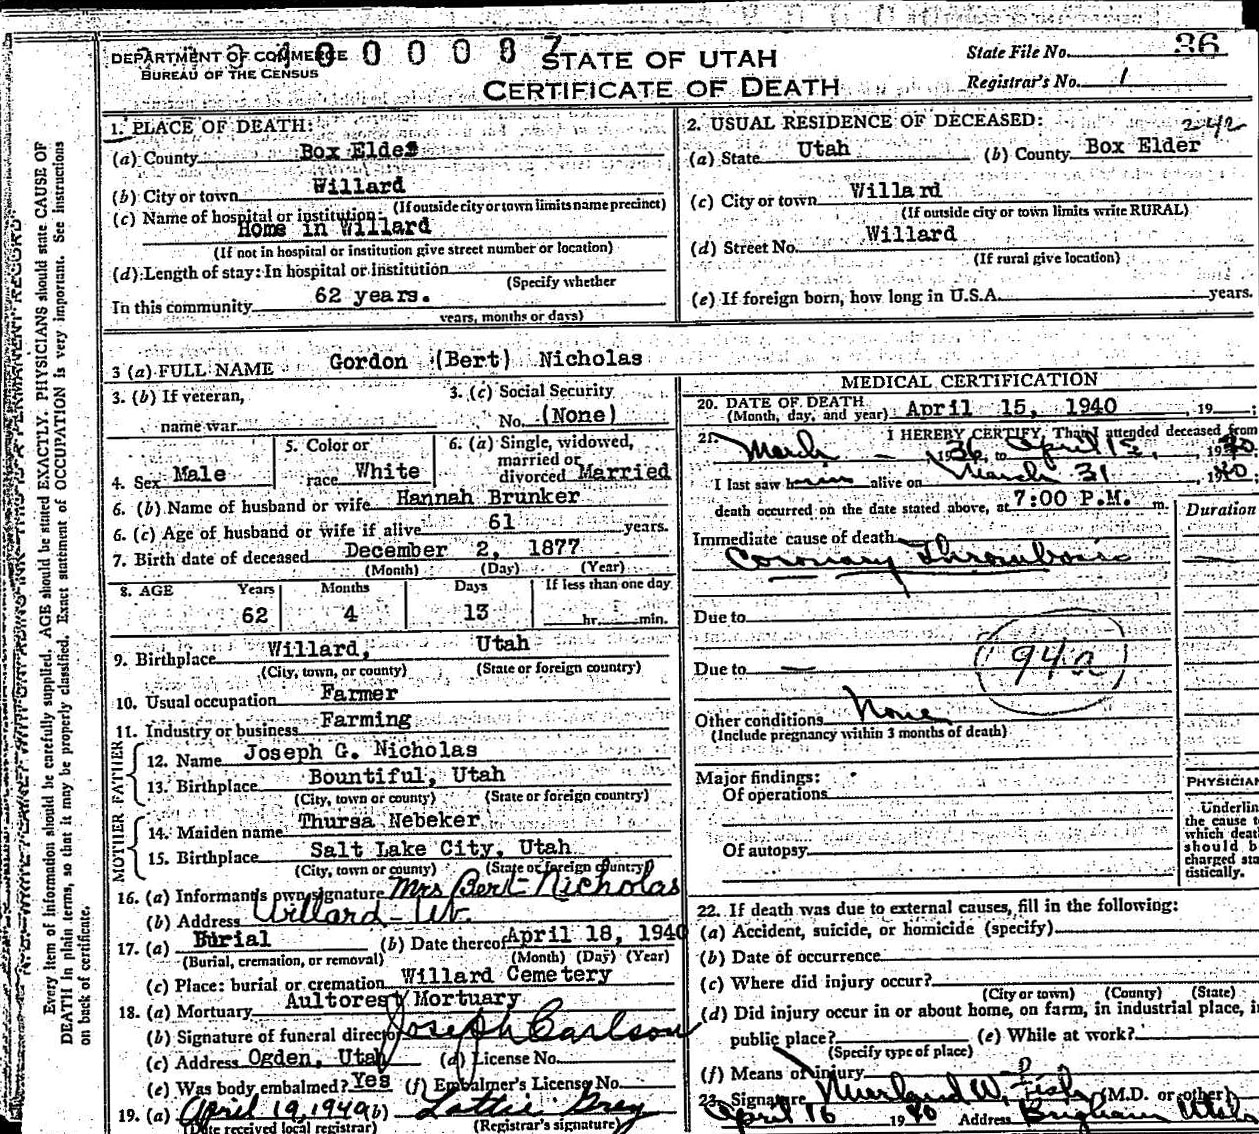 DEPARTMENT OF COMMERCE
BUREAU OF THE CENSUS
STATE OF UTAH
CERTIFICATE OF DEATH
State File No. 36
Registrar's No. 1
1. PLACE OF DEATH:
(a) County Box Elder
(b) City or town Willard
(If outside city or town limits name precinct)
(c) Name of hospital or institution:
Home in Willard
(If not in hospital or institution give street number or location)
(d) Length of stay: In hospital or institution
(Specify whether
In this community 62 years.
years, months or days)
2. USUAL RESIDENCE OF DECEASED: 242
(a) State Utah (b) County Box Elder
(c) City or town Willard
(If outside city or town limits write RURAL)
(d) Street No. Willard
(If rural give location)
(e) If foreign born, how long in U.S.A. years.
3 (a) FULL NAME Gordon (Bert) Nicholas
3. (b) If veteran,
name war
3. (c) Social Security
No. (None)
4. Sex Male
5. Color or
race White
6. (a) Single, widowed,
married or
divorced Married
6. (b) Name of husband or wife Hannah Brunker
6. (c) Age of husband or wife if alive 61 years.
7. Birth date of deceased December 2, 1877
(Month) (Day) (Year)
8. AGE Years Months Days If less than one day
62 4 13 hr. min.
9. Birthplace Willard, Utah
(City, town, or county) (State or foreign country)
10. Usual occupation Farmer
11. Industry or business Farming
FATHER
12. Name Joseph G. Nicholas
13. Birthplace Bountiful, Utah
(City, town or county) (State or foreign country)
MOTHER
14. Maiden name Thursa Nebeker
15. Birthplace Salt Lake City, Utah
(City, town or county) (State or foreign country)
16. (a) Informant's own signature Mrs Bert Nicholas
(b) Address Willard - Ut.
17. (a) Burial (b) Date thereof April 18, 1940
(Burial, cremation, or removal) (Month) (Day) (Year)
(c) Place: burial or cremation Willard Cemetery
18. (a) Mortuary Aultorest Mortuary
(b) Signature of funeral director Joseph Carlson
(c) Address Ogden, Utah (d) License No.
(e) Was body embalmed? Yes (f) Embalmer's License No.
19. (a) April 19, 1940 (b) Lottie Grey
(Date received local registrar) (Registrar's signature)
MEDICAL CERTIFICATION
20. DATE OF DEATH
(Month, day, and year) April 15, 1940, 19 ;
21. I HEREBY CERTIFY, That I attended deceased from
March - , 1936, to April 15, , 1940
I last saw him alive on March 31 , 1940;
death occurred on the date stated above, at 7:00 P.M. m.
Duration
Immediate cause of death
Coronary Thrombosis
Due to
Due to —
94a
Other conditions None
(Include pregnancy within 3 months of death)
Major findings:
Of operations
Of autopsy
PHYSICIAN
Underlin
the cause t
which deat
should b
charged sta
tistically.
22. If death was due to external causes, fill in the following:
(a) Accident, suicide, or homicide (specify)
(b) Date of occurrence
(c) Where did injury occur?
(City or town) (County) (State)
(d) Did injury occur in or about home, on farm, in industrial place, in
public place? (e) While at work?
(Specify type of place)
(f) Means of injury
23. Signature W. (M.D. or other)
April 16 1940 Address Brigham Utah
Every item of information should be carefully supplied. AGE should be stated EXACTLY. PHYSICIANS should state CAUSE OF
DEATH in plain terms, so that it may be properly classified. Exact statement of OCCUPATION is very important. See Instructions
on back of certificate.